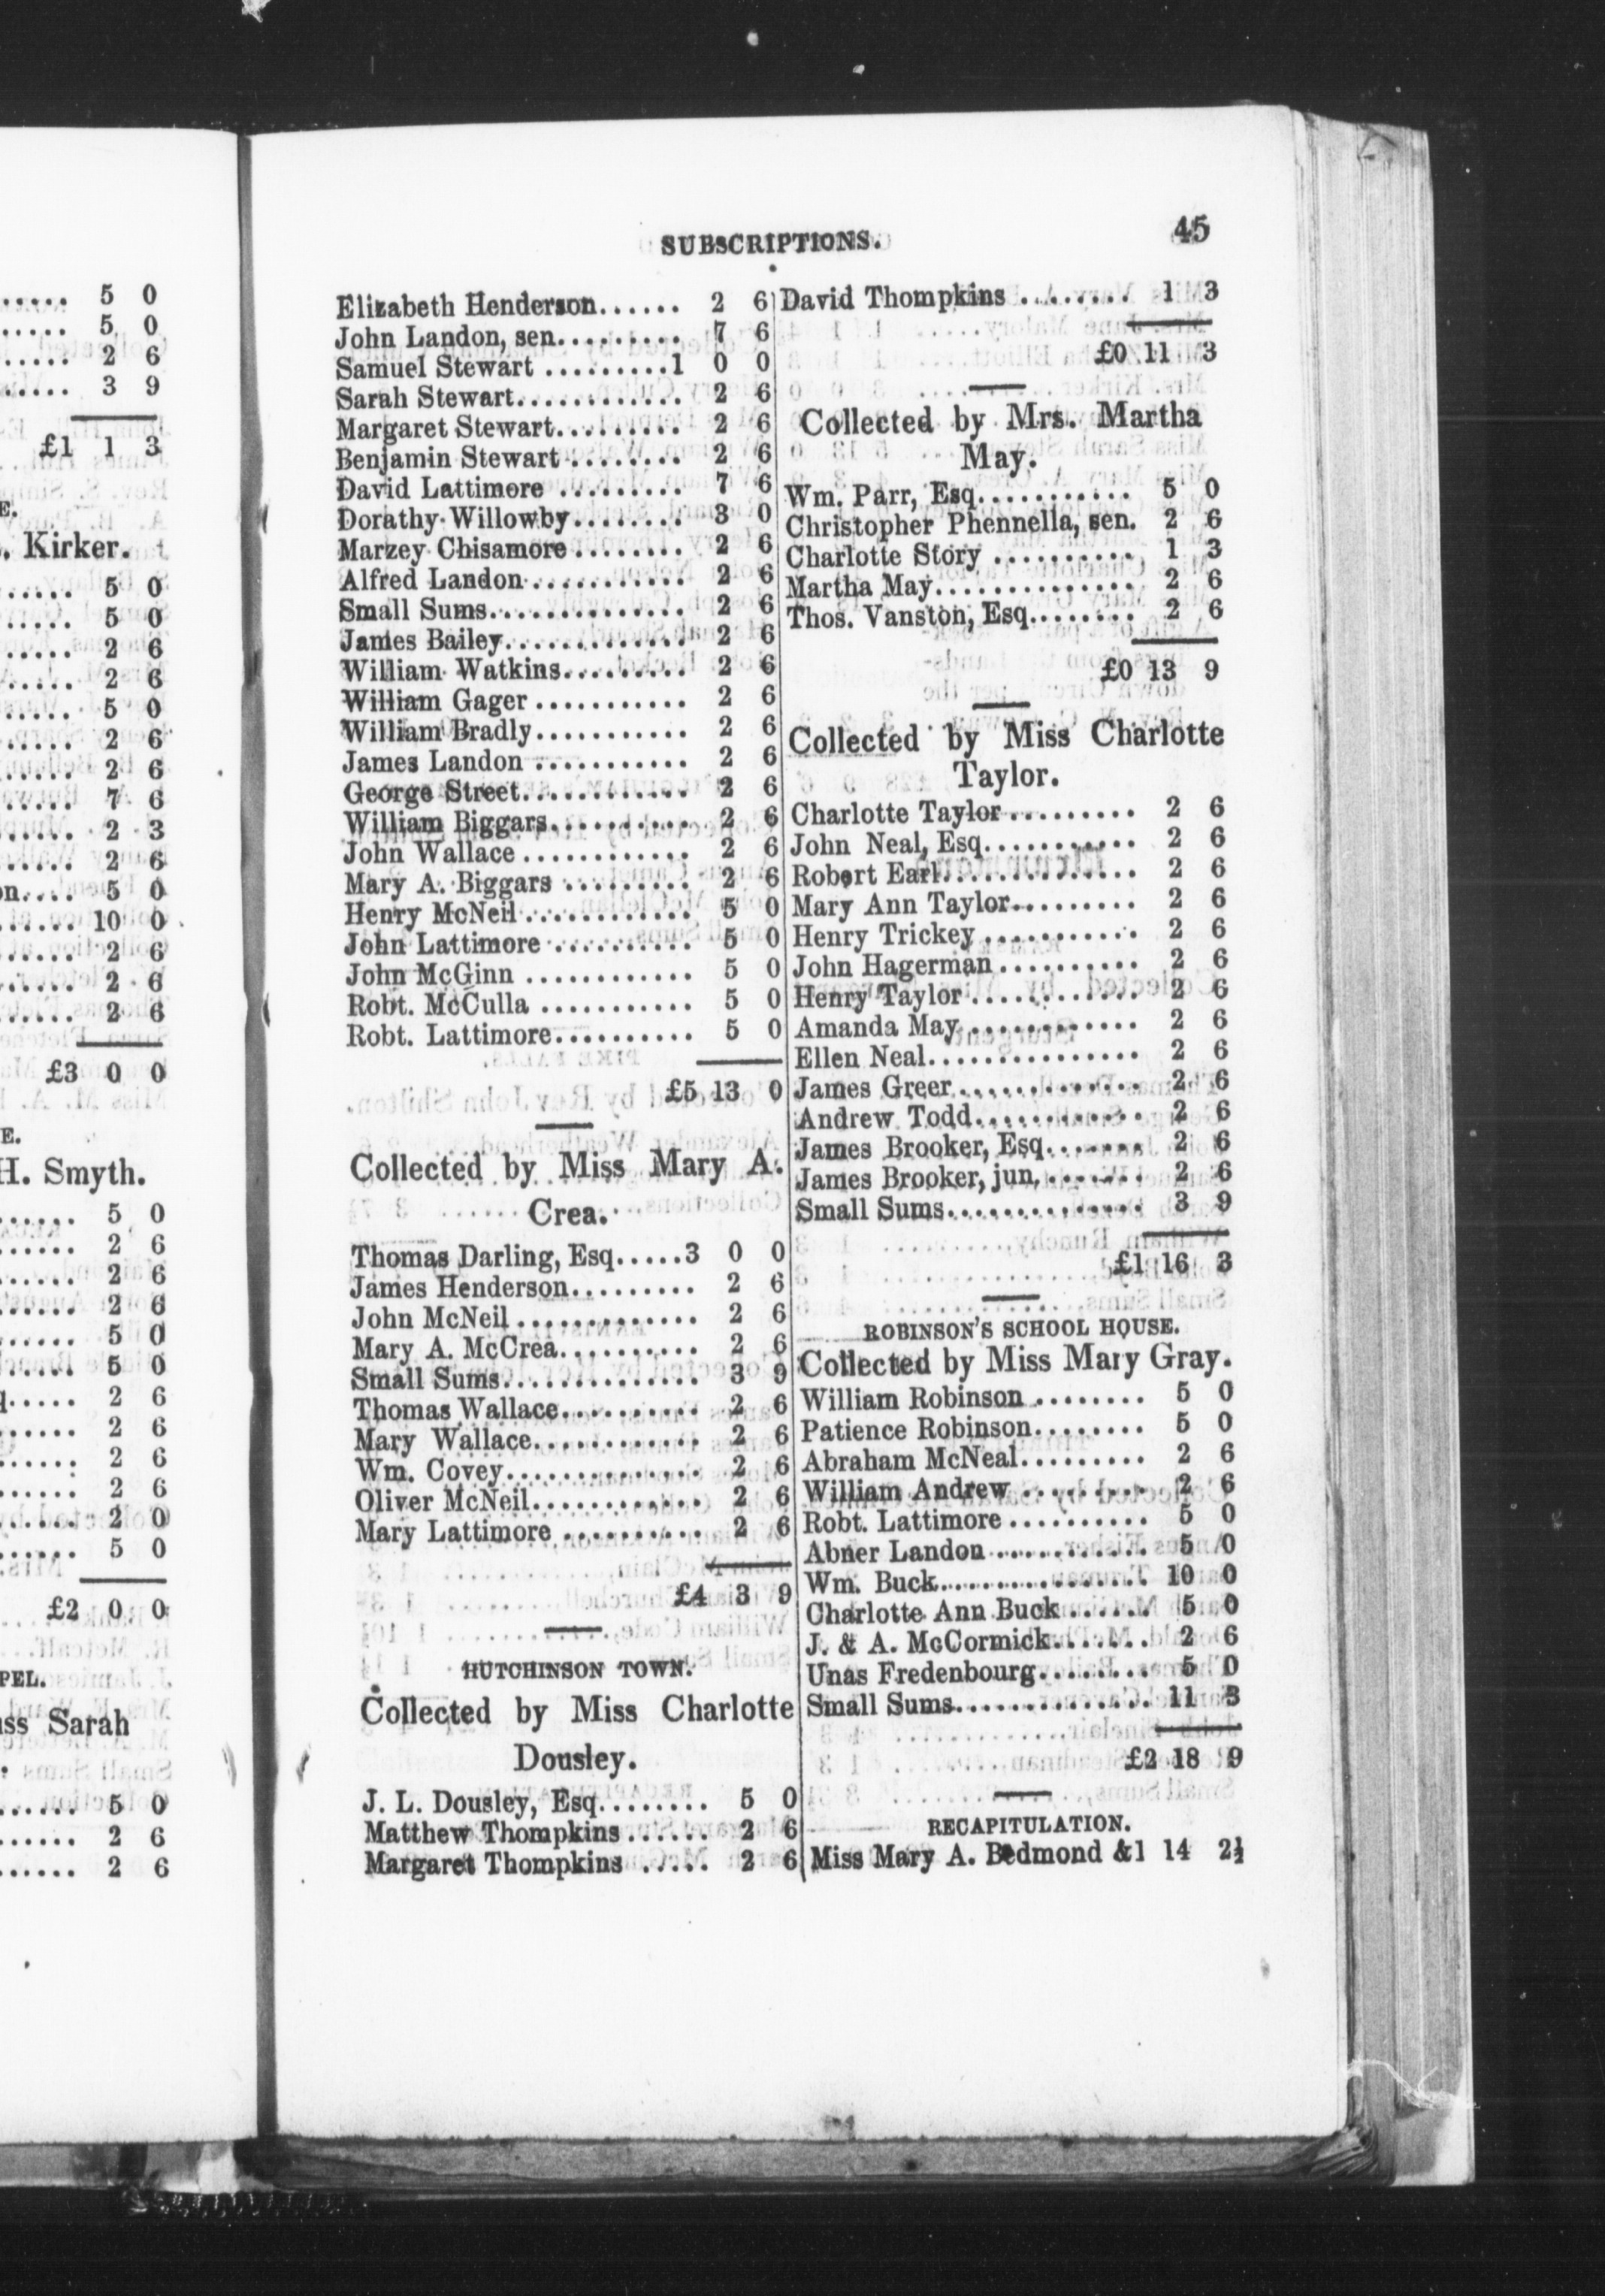 ..... 5 0
..... 5 0
..... 2 6
..... 3 9
£1 1 3
E.
. Kirker.
..... 5 0
..... 5 0
..... 2 6
..... 2 6
..... 5 0
..... 2 6
..... 2 6
..... 7 6
..... 2 3
..... 2 6
on.... 5 0
..... 10 0
..... 2 6
..... 2 6
..... 2 6
£3 0 0
E.
H. Smyth.
..... 5 0
..... 2 6
..... 2 6
..... 2 6
..... 5 0
..... 5 0
..... 2 6
..... 2 6
..... 2 6
..... 2 6
..... 2 0
..... 5 0
£2 0 0
PEL.
iss Sarah
..... 5 0
..... 2 6
..... 2 6
SUBSCRIPTIONS. 45
Elizabeth Henderson...... 2 6
John Landon, sen......... 7 6
Samuel Stewart .........1 0 0
Sarah Stewart............ 2 6
Margaret Stewart......... 2 6
Benjamin Stewart ........ 2 6
David Lattimore ......... 7 6
Dorathy Willowby........ 3 0
Marzey Chisamore ........ 2 6
Alfred Landon ........... 2 6
Small Sums.............. 2 6
James Bailey............. 2 6
William Watkins......... 2 6
William Gager ........... 2 6
William Bradly........... 2 6
James Landon ........... 2 6
George Street............ 2 6
William Biggars.......... 2 6
John Wallace ............ 2 6
Mary A. Biggars ......... 2 6
Henry McNeil ............ 5 0
John Lattimore .......... 5 0
John McGinn ............ 5 0
Robt. McCulla ........... 5 0
Robt. Lattimore.......... 5 0
£5 13 0
Collected by Miss Mary A.
Crea.
Thomas Darling, Esq.....3 0 0
James Henderson......... 2 6
John McNeil ............. 2 6
Mary A. McCrea.......... 2 6
Small Sums.............. 3 9
Thomas Wallace.......... 2 6
Mary Wallace............ 2 6
Wm. Covey.............. 2 6
Oliver McNeil............ 2 6
Mary Lattimore .......... 2 6
£4 3 9
HUTCHINSON TOWN.
Collected by Miss Charlotte
Dousley.
J. L. Dousley, Esq........ 5 0
Matthew Thompkins ...... 2 6
Margaret Thompkins ..... 2 6
David Thompkins ........ 1 3
£0 11 3
Collected by Mrs. Martha
May.
Wm. Parr, Esq........... 5 0
Christopher Phennella, sen. 2 6
Charlotte Story .......... 1 3
Martha May.............. 2 6
Thos. Vanston, Esq........ 2 6
£0 13 9
Collected by Miss Charlotte
Taylor.
Charlotte Taylor ......... 2 6
John Neal, Esq........... 2 6
Robert Earl.............. 2 6
Mary Ann Taylor......... 2 6
Henry Trickey ........... 2 6
John Hagerman.......... 2 6
Henry Taylor ............ 2 6
Amanda May ............ 2 6
Ellen Neal............... 2 6
James Greer............. 2 6
Andrew Todd............ 2 6
James Brooker, Esq....... 2 6
James Brooker, jun........ 2 6
Small Sums.............. 3 9
£1 16 3
ROBINSON'S SCHOOL HOUSE.
Collected by Miss Mary Gray.
William Robinson ........ 5 0
Patience Robinson........ 5 0
Abraham McNeal......... 2 6
William Andrew ......... 2 6
Robt. Lattimore .......... 5 0
Abner Landon ........... 5 0
Wm. Buck............... 10 0
Charlotte Ann Buck ...... 5 0
J. & A. McCormick....... 2 6
Unas Fredenbourg........ 5 0
Small Sums.............. 11 3
£2 18 9
RECAPITULATION.
Miss Mary A. Bedmond &1 14 2½